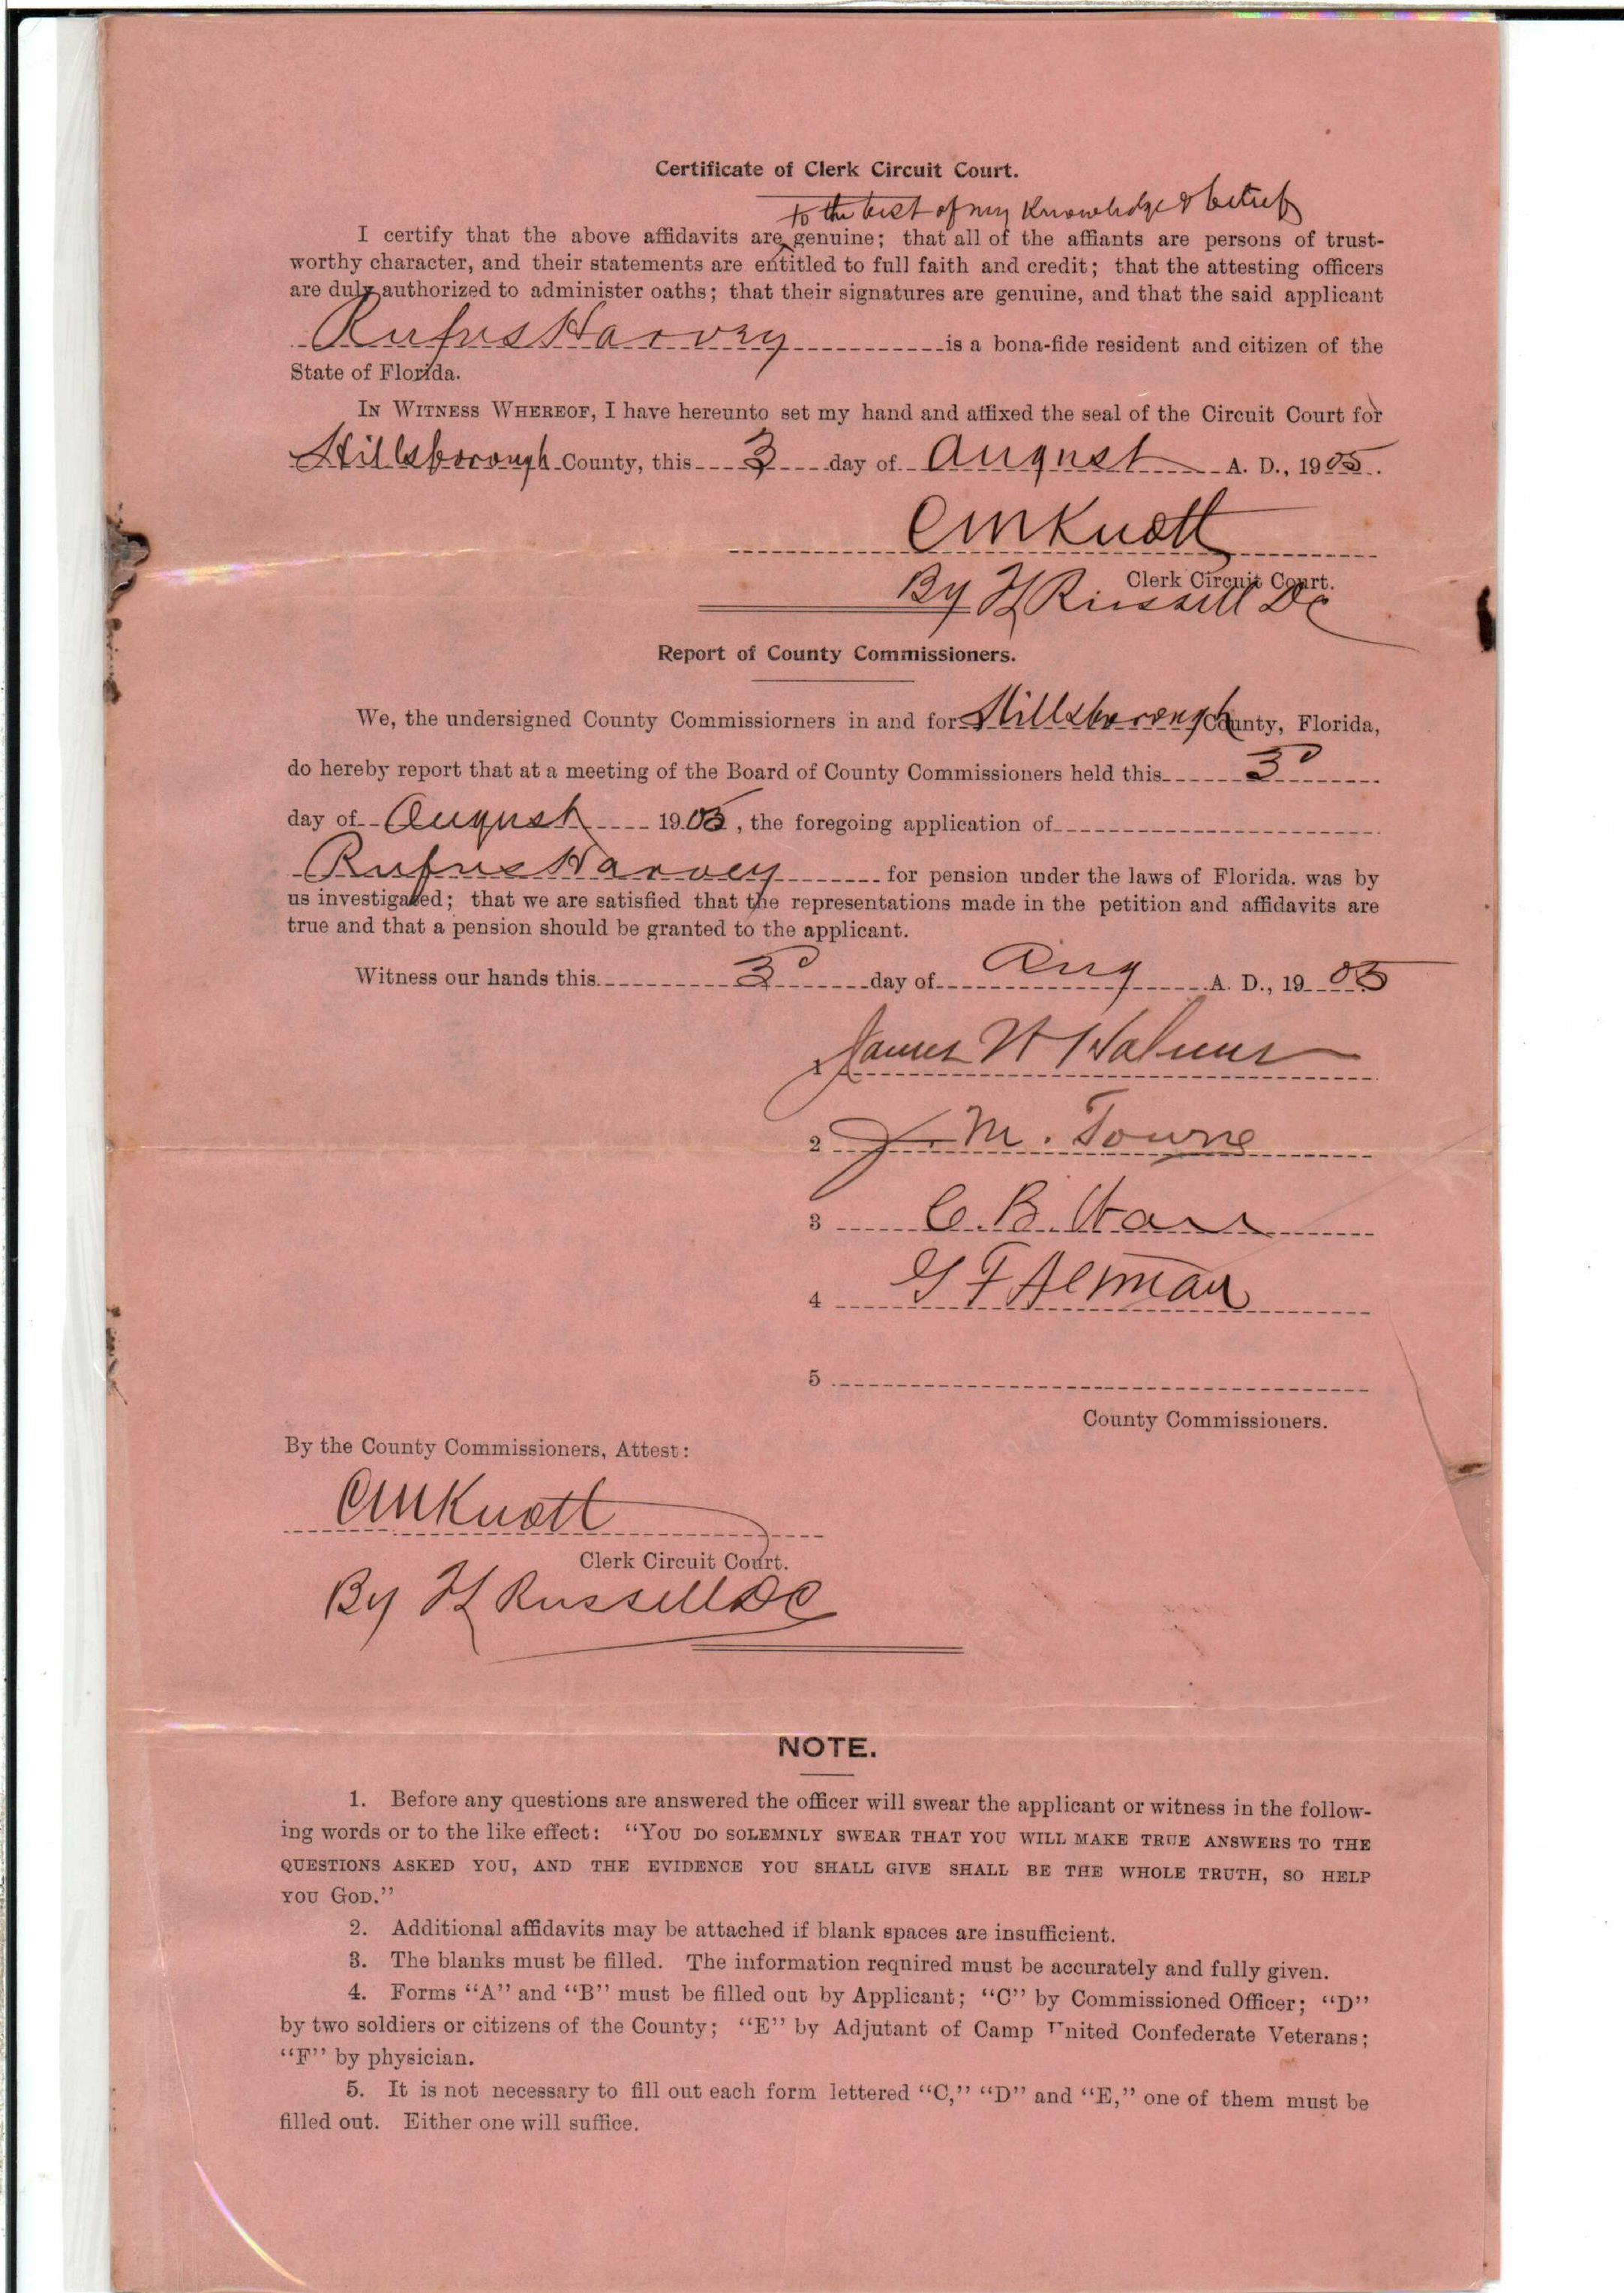 Certificate of Clerk Circuit Court.
to the best of my Knowledge & belief
I certify that the above affidavits are genuine; that all of the affiants are persons of trust-
worthy character, and their statements are entitled to full faith and credit; that the attesting officers
are duly authorized to administer oaths; that their signatures are genuine, and that the said applicant
Rufus Harvey is a bona-fide resident and citizen of the
State of Florida.
IN WITNESS WHEREOF, I have hereunto set my hand and affixed the seal of the Circuit Court for
Hillsborough County, this 3 day of August A. D., 1905.
C M Knott
Clerk Circuit Court.
By H L Russell DC
Report of County Commissioners.
We, the undersigned County Commissiorners in and for Hillsborough County, Florida,
do hereby report that at a meeting of the Board of County Commissioners held this 3d
day of August 1905, the foregoing application of
Rufus Harvey for pension under the laws of Florida. was by
us investigated; that we are satisfied that the representations made in the petition and affidavits are
true and that a pension should be granted to the applicant.
Witness our hands this 3d day of Aug A. D., 1905
1 James
2 J. M. Towne
3 C. B.
4 G F Alman
5
County Commissioners.
By the County Commissioners, Attest:
C M Knott
Clerk Circuit Court.
By H L Russell DC
NOTE.
1. Before any questions are answered the officer will swear the applicant or witness in the follow-
ing words or to the like effect: "YOU DO SOLEMNLY SWEAR THAT YOU WILL MAKE TRUE ANSWERS TO THE
QUESTIONS ASKED YOU, AND THE EVIDENCE YOU SHALL GIVE SHALL BE THE WHOLE TRUTH, SO HELP
YOU GOD."
2. Additional affidavits may be attached if blank spaces are insufficient.
3. The blanks must be filled. The information required must be accurately and fully given.
4. Forms "A" and "B" must be filled out by Applicant; "C" by Commissioned Officer; "D"
by two soldiers or citizens of the County; "E" by Adjutant of Camp United Confederate Veterans;
"F" by physician.
5. It is not necessary to fill out each form lettered "C," "D" and "E," one of them must be
filled out. Either one will suffice.